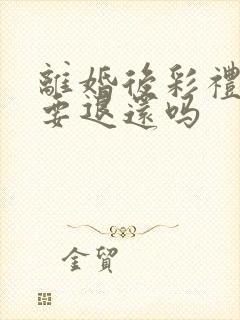 離婚後彩禮
要退還嗎
金貿